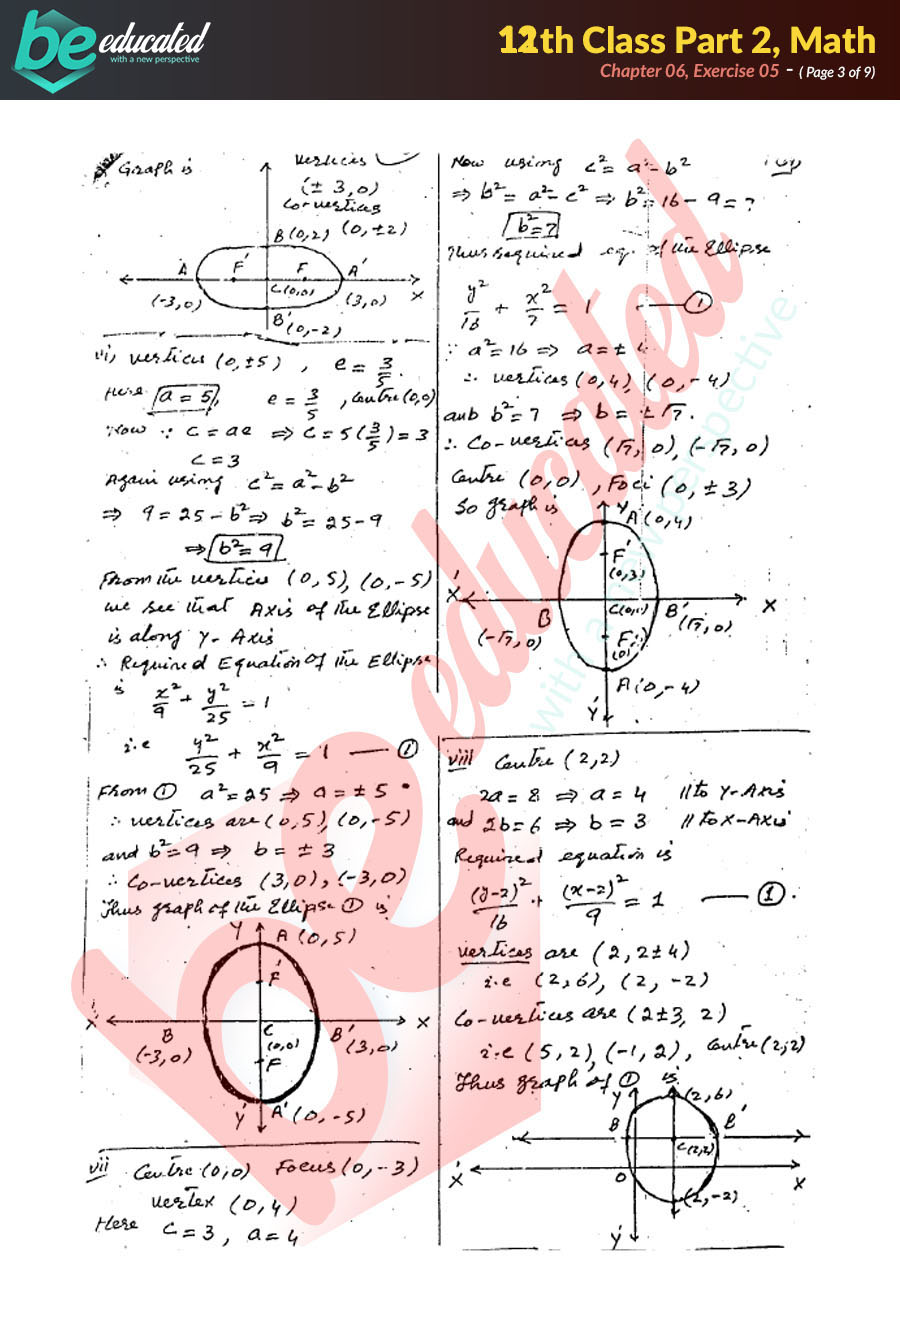 be educated
with a new perspective
12th Class Part 2, Math
Chapter 06, Exercise 05 - ( Page 3 of 9)
Graph is
vertices
(± 3, 0)
Co-vertices
(0, ±2)
B (0, 2)
A F' F A'
C(0,0)
(-3, 0) (3, 0) X
B' (0, -2)
vi, vertices (0, ±5) , e = 3/5
Here a = 5, e = 3/5, Centre (0,0)
Now ∵ c = ae ⇒ c = 5(3/5) = 3
c = 3
Again using c² = a² - b²
⇒ 9 = 25 - b² ⇒ b² = 25 - 9
⇒ b² = 9
From the vertices (0, 5), (0, -5)
we see that Axis of the Ellipse
is along Y-Axis
∴ Required Equation Of the Ellipse
is x²/9 + y²/25 = 1
i.e y²/25 + x²/9 = 1 — ①
From ① a² = 25 ⇒ a = ± 5
∴ vertices are (0, 5), (0, -5)
and b² = 9 ⇒ b = ± 3
∴ Co-vertices (3, 0), (-3, 0)
Thus graph of the Ellipse ① is
Y A (0, 5)
F'
X' B C B' X
(-3, 0) (0,0) (3, 0)
F
Y' A' (0, -5)
vii Centre (0,0) Focus (0, -3)
vertex (0, 4)
Here c = 3, a = 4
Now using c² = a² - b²
⇒ b² = a² - c² ⇒ b² = 16 - 9 = 7
b² = 7
Thus required eq. of the Ellipse
y²/16 + x²/7 = 1 — ①
∵ a² = 16 ⇒ a = ± 4
∴ vertices (0, 4), (0, -4)
and b² = 7 ⇒ b = ± √7.
∴ Co-vertices (√7, 0), (-√7, 0)
Centre (0, 0), Foci (0, ± 3)
So graph is
Y A (0, 4)
F'
(0, 3)
X' X
B C(0,0) B'
(-√7, 0) (√7, 0)
F
A (0, -4)
Y'
viii Centre (2, 2)
2a = 8 ⇒ a = 4 // to Y-Axis
and 2b = 6 ⇒ b = 3 // to X-Axis
Required equation is
(y-2)²/16 + (x-2)²/9 = 1 — ①
vertices are (2, 2±4)
i.e (2, 6), (2, -2)
Co-vertices are (2±3, 2)
i.e (5, 2), (-1, 2), Centre (2, 2)
Thus graph of ① is
Y (2, 6)
B B'
C(2,2)
X' O X
(2, -2)
Y'
be educated
with a new perspective